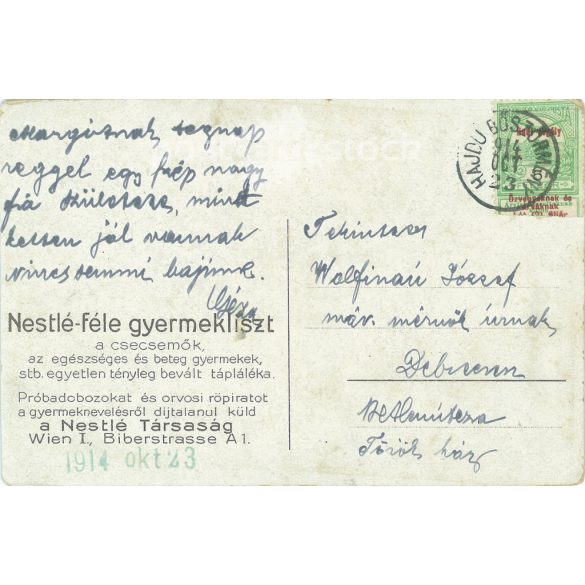 Margitnak tegnap
reggel egy szép nagy
fia született, mind
ketten jól vannak
nincs semmi bajunk.
Géza
Nestlé-féle gyermekliszt
a csecsemők,
az egészséges és beteg gyermekek,
stb. egyetlen tényleg bevált tápláléka.
Próbadobozokat és orvosi röpiratot
a gyermeknevelésről dijtalanul küld
a Nestlé Társaság
Wien I., Biberstrasse A 1.
1914 okt 23
HAJDU BÖSZÖRMÉNY
914
OKT
23
Hadi segély
Özvegyeknek és
árváknak
Tekintetes
József
máv. mérnök úrnak
Debrecen
Török ház